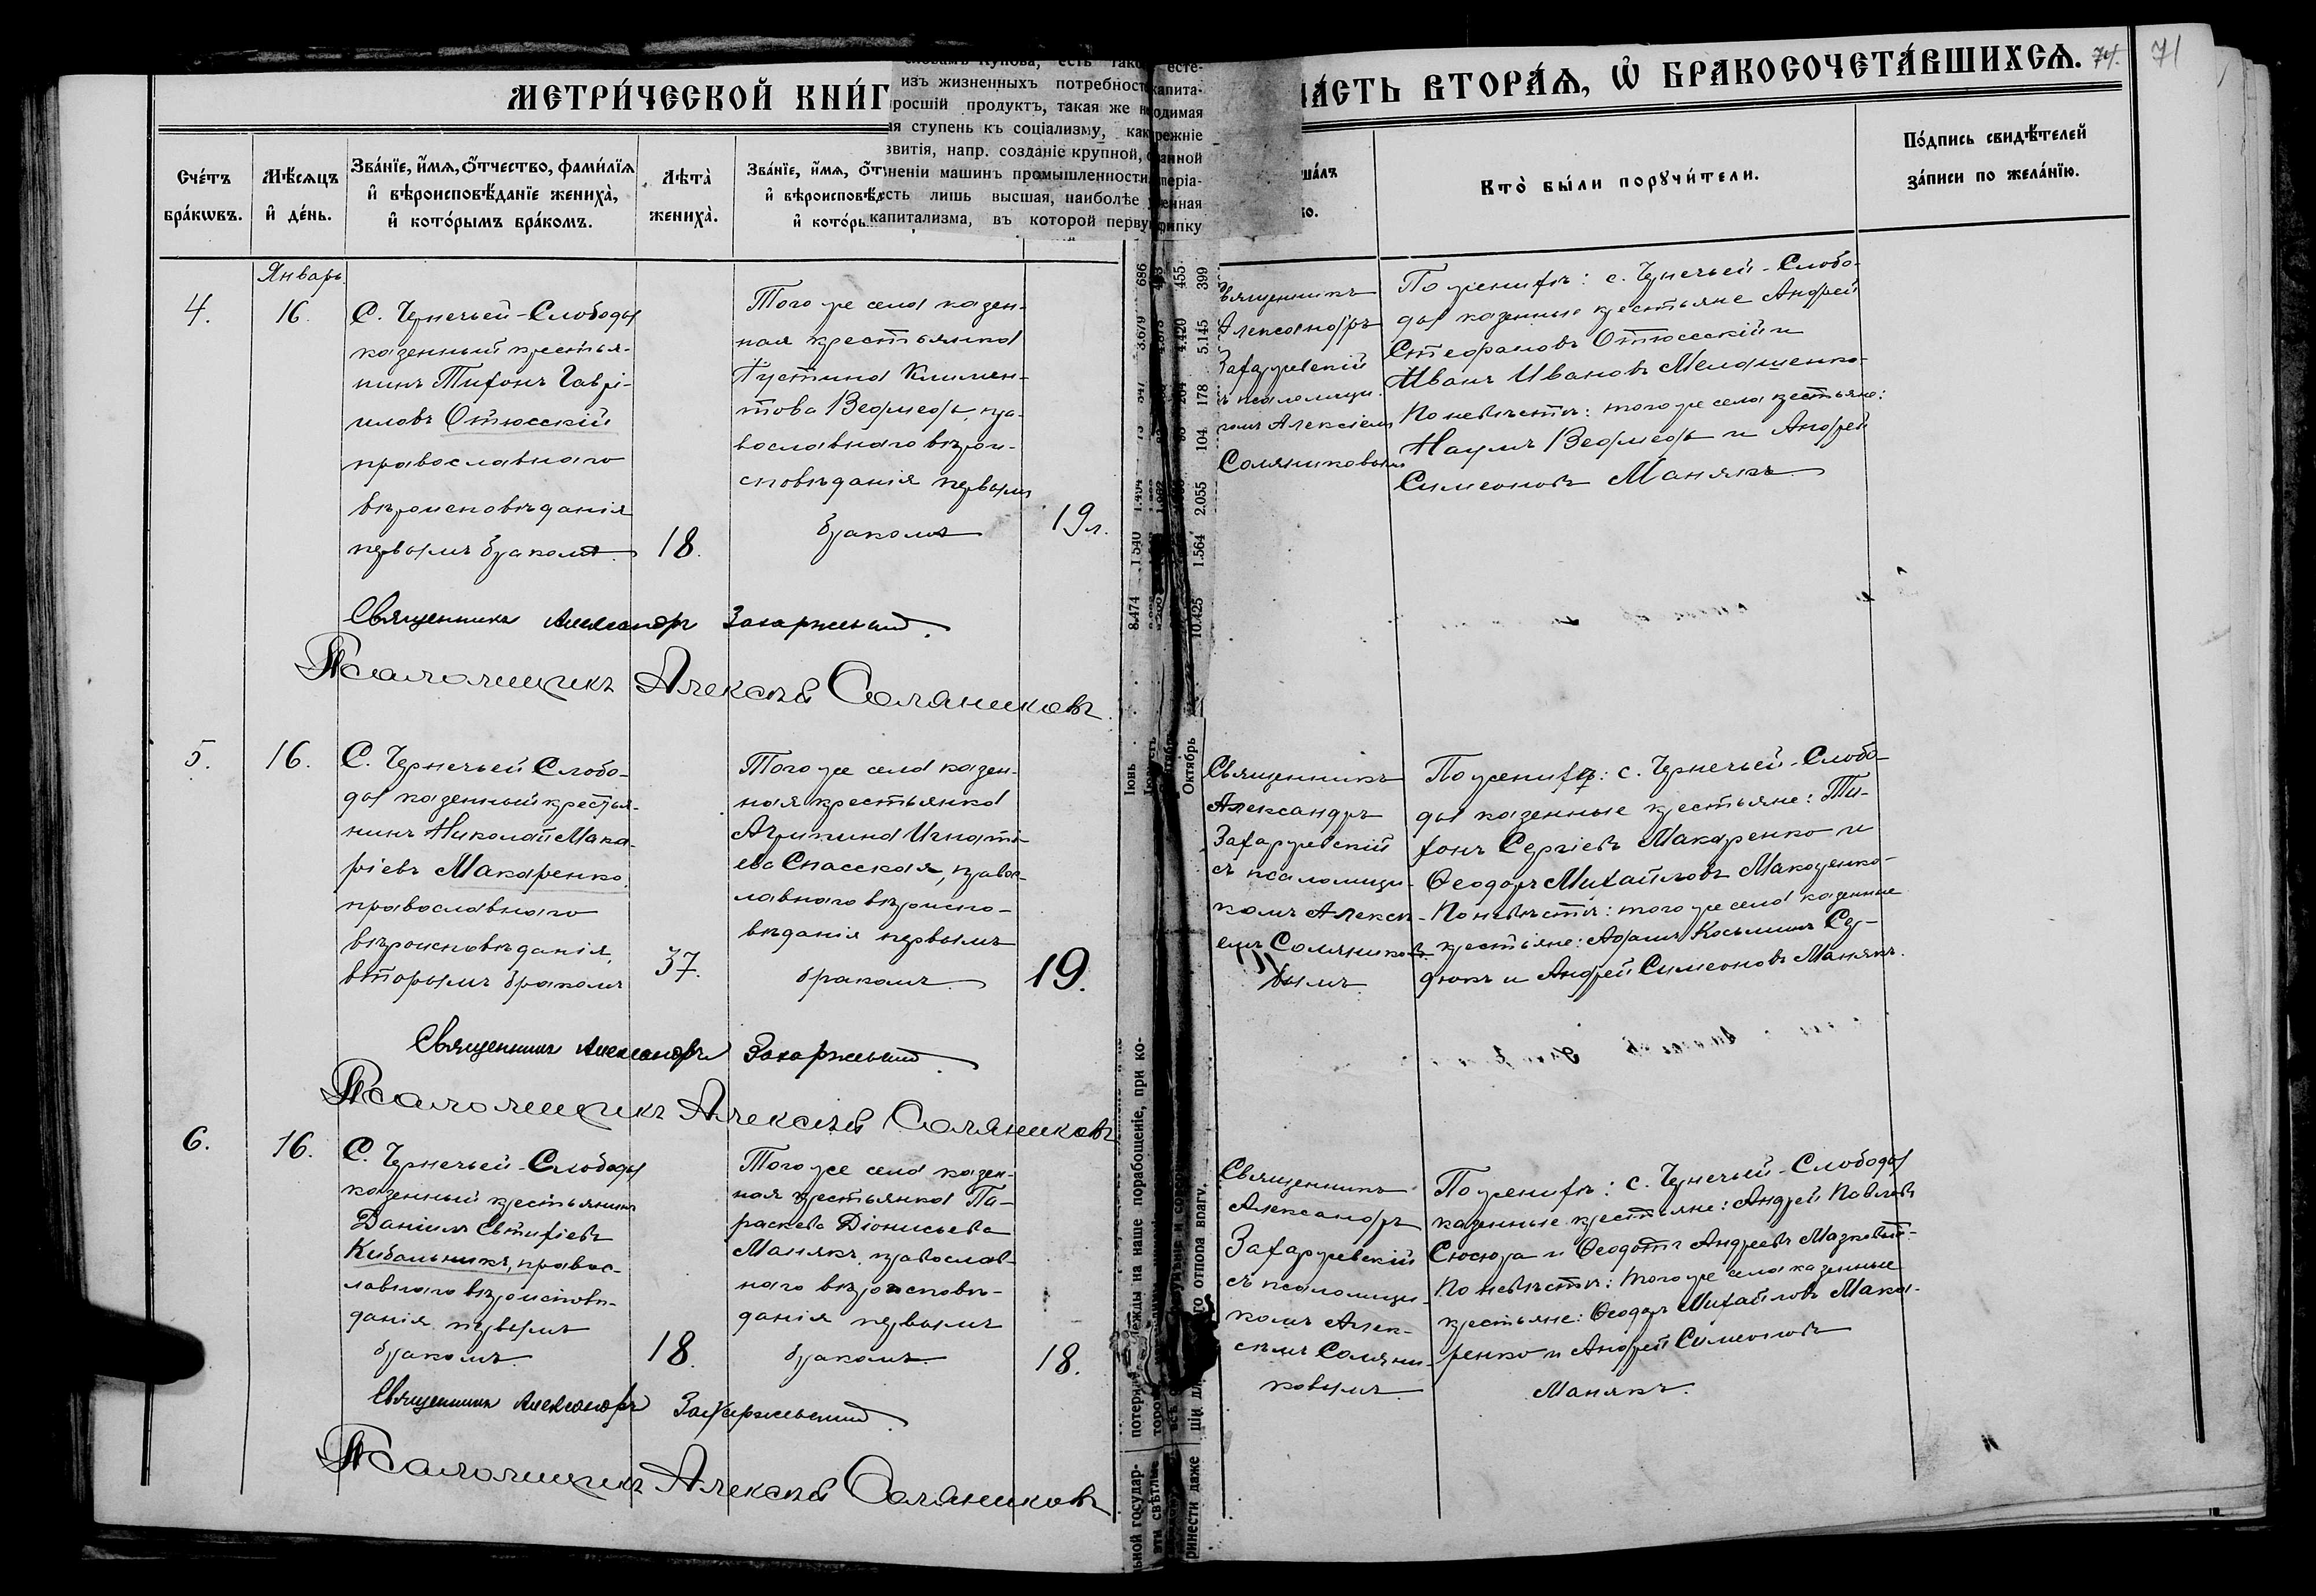 МЕТРИ́ЧЕСКОЙ КНИ́Г
ЧА́СТЬ ВТОРА́Я, Ѡ҆ БРАКОСОЧЕТА́ВШИХСѦ. 74.
71
изъ жизненныхъ потребност
росшій продуктъ, такая же н
ступень къ соціализму, как
звитія, напр. созданіе крупной,
неніи машинъ промышленности
есть лишь высшая, наиболѣе
капитализма, въ которой перву
есте-
капита-
ходимая
режніе
анной
періа-
Сче́тъ
бра́кѡвъ.
Мѣ́сѧцъ
и҆ де́нь.
Зва́нїе, и҆́мѧ, ѻ҆́тчество, фами́лїѧ
и҆ вѣроисповѣ́данїе жениха̀,
и҆ кото́рымъ бра́комъ.
Лѣта̀
жениха̀.
Зва́нїе, и҆́мѧ, ѻ҆́т
и҆ вѣроисповѣ́д
и҆ кото́ры
Кто̀ бы́ли порꙋчи́тели.
По́дпись свидѣ́телей
за́писи по жела́нїю.
Январь
4.
16.
С. Чернечьей-Слободы
казенный крестья-
нинъ Тихонъ Гаврі-
иловъ Отюсскій
православнаго
вѣроисповѣданія
первымъ бракомъ.
18.
Того же села казен-
ная крестьянка
Іустина Климен-
това Ведмедь, пра-
вославнаго вѣрои-
сповѣданія первымъ
бракомъ
19 л.
Священникъ
Александръ
Захаржевскій
съ псаломщи-
комъ Алексіемъ
Соляниковымъ
По женихѣ: с. Чернечьей-Слобо-
ды казенные крестьяне Андрей
Стефановъ Отюсскій и
Иванъ Ивановъ Мелашенко-
По невѣстѣ: того же села крестьяне:
Наумъ Ведмедь и Андрей
Симеоновъ Манякъ
Священникъ Александръ Захаржевскій.
Псаломщикъ Алексѣй Соляниковъ.
5.
16.
С. Чернечьей Слобо-
ды казенный крестья-
нинъ Николай Мака-
ріевъ Макаренко,
православнаго
вѣроисповѣданія,
вторымъ бракомъ
37.
Того же села казен-
ная крестьянка
Агрипина Игнать-
ева Спасская, правос-
лавнаго вѣроиспо-
вѣданія первымъ
бракомъ.
19.
Священникъ
Александръ
Захаржевскій
съ псаломщи-
комъ Алексѣ-
емъ Соляников-
вымъ.
По женихѣ: с. Чернечьей-Слобо-
ды казенные крестьяне: Ти-
хонъ Сергіевъ Макаренко и
Ѳеодоръ Михайловъ Макаренко-
По невѣстѣ: того же села казенные
крестьяне: Адамъ Косьминъ Сер-
дюкъ и Андрей Симеоновъ Манякъ.
Священникъ Александръ Захаржевскій.
Псаломщикъ Алексѣй Соляниковъ
6.
16.
С. Чернечьей-Слободы
казенный крестьянинъ
Даніилъ Евтихіевъ
Кибальникъ, правос-
лавнаго вѣроисповѣ-
данія первымъ
бракомъ.
18.
Того же села казен-
ная крестьянка Па-
раскева Діонисьева
Манякъ, православ-
наго вѣроисповѣ-
данія первымъ
бракомъ.
18.
Священникъ
Александръ
Захаржевскій
съ псаломщи-
комъ Алек-
сѣемъ Соляни-
ковымъ
По женихѣ: с. Чернечьей-Слободы
казенные крестьяне: Андрей Павловъ
Сюсюра и Ѳеодотъ Андреевъ
По невѣстѣ: того же села казенные
крестьяне: Ѳеодоръ Михайловъ Мака-
ренко и Андрей Симеоновъ
Манякъ.
Священникъ Александръ Захаржевскій.
Псаломщикъ Алексѣй Соляниковъ
Іюнь 8.474 1.540
Октябрь 10.425 1.564 2.055 104 178 5.145 399
4.420 455
686
надежды на наше порабощеніе, при ко-
отпора врагу.